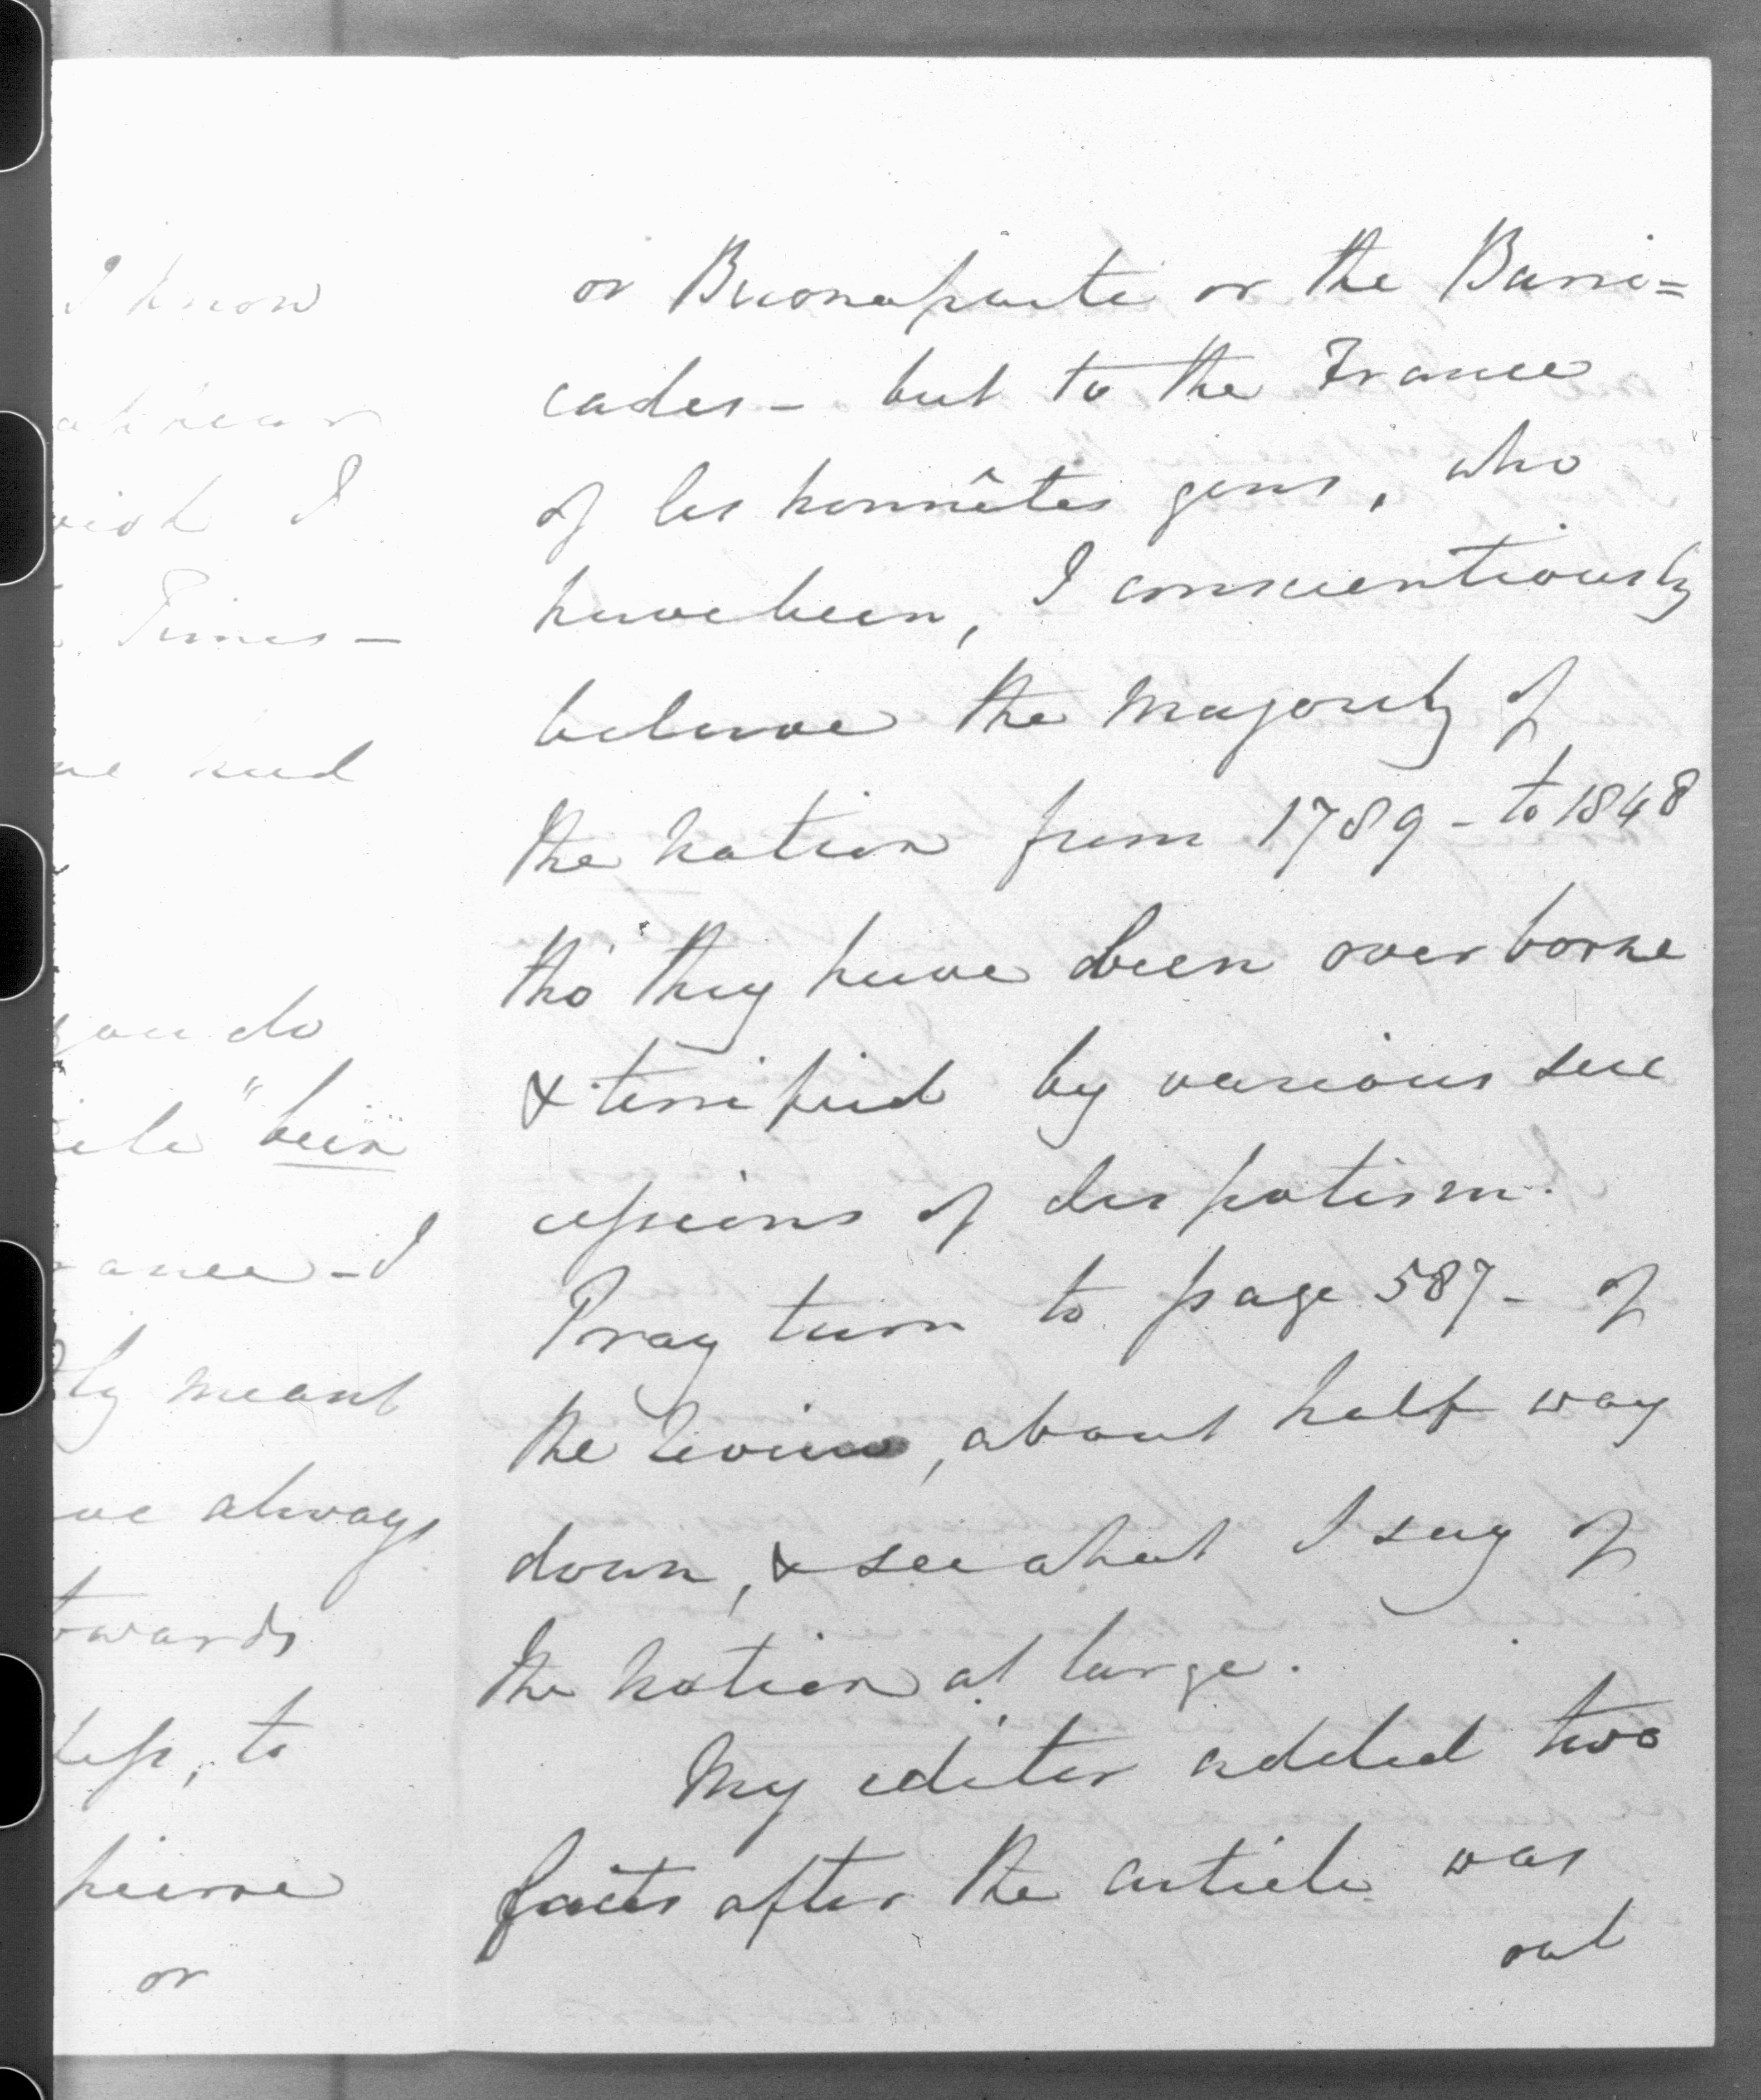 I know
I
Times —
had
you do
" been
ance — I
ly meant
ve always
towards
less, to
pierre
or
or Buonaparte or the Barri=
cades — but to the France
of les honnêtes gens, who
have been, I conscientiously
believe the majority of
the nation from 1789 — to 1848
tho' they have been overborne
& terrified by various succ
essions of despotism.
Pray turn to page 587 — of
the Review, about half way
down, & see what I say of
the nation at large.
My editor added two
facts after the article was
out